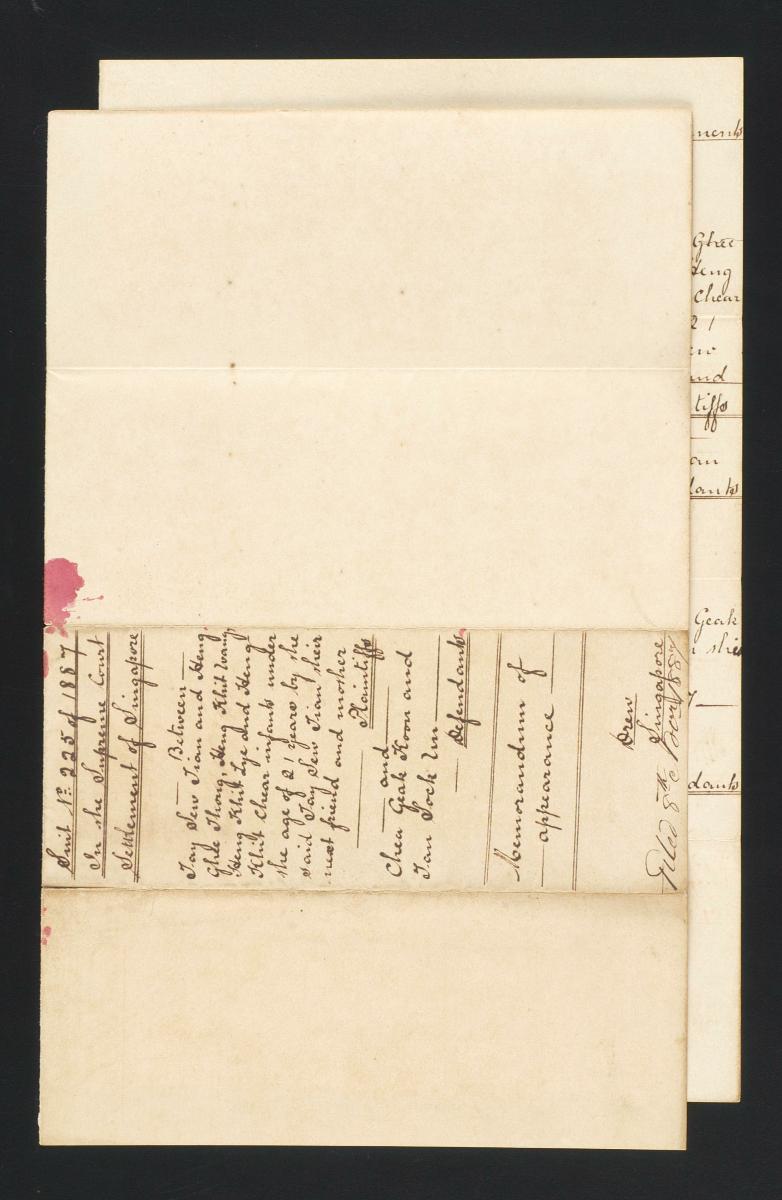 Suit No. 225 of 1887
In the Supreme Court
Settlement of Singapore
Between
Tay Sew Tian and Heng
Ghee Thong, Heng Khit Wang
Heng Khit Lye and Heng
Khit Chear infants under
the age of 21 years by the
said Tay Sew Tian their
next friend and mother
Plaintiffs
and
Chea Geak Koon and
Tan Tock Um
Defendants
Memorandum of
appearance
Drew
Singapore
Filed 8th 1887
ments
Ghee
Heng
Chear
21
ew
and
tiffs
an
dants
Geak
dants